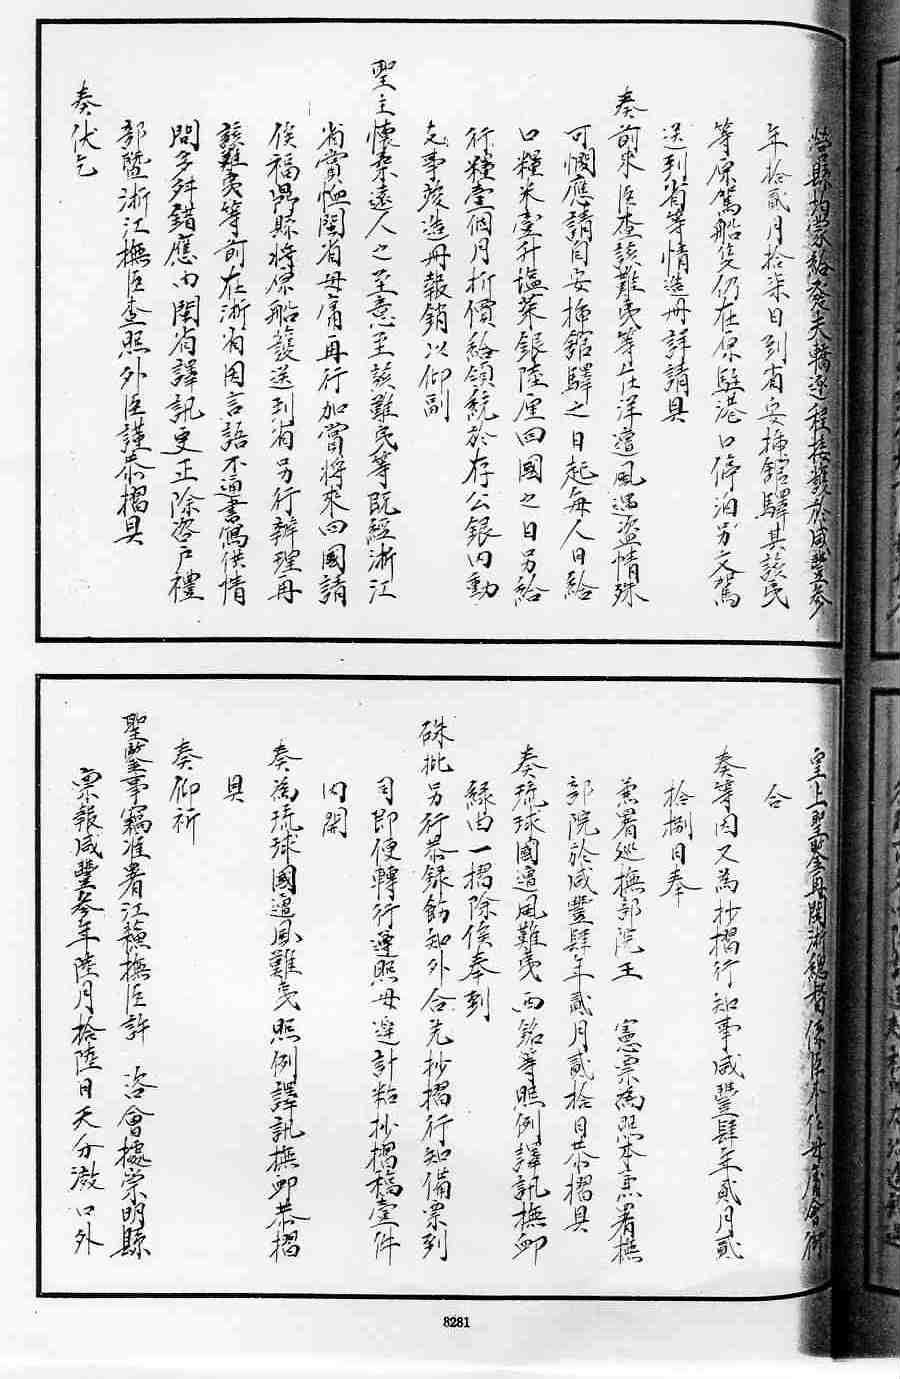 營縣均蒙給發夫轎逐程接護於咸豐參
年拾貳月拾柒日到省安插館驛其該民
等原駕船隻仍在原駐港口停泊另文駕
送到省等情造冊詳請具
奏前來臣查該難夷等在洋遭風遇盜情殊
可憫應請自安插館驛之日起每人日給
口糧米壹升塩菜銀陸厘回國之日另給
行糧壹個月折價給領統於存公銀內動
支事竣造冊報銷以仰副
聖主懷柔遠人之至意至該難民等既經浙江
省賞恤閩省毋庸再行加賞將來回國請
俟福鼎縣將原船護送到省另行辦理再
該難夷等前在浙省因言語不通書寫供情
間多舛錯應由閩省譯訊更正除咨戶禮
部暨浙江撫臣查照外臣謹恭摺具
奏伏乞
皇上聖鑒再閩浙總督係臣本任毋庸會銜
合
奏等因又為抄摺行知事咸豐肆年貳月貳
拾捌日奉
兼署巡撫部院王 憲票為照本兼署撫
部院於咸豐肆年貳月貳拾日恭摺具
奏琉球國遭風難夷西銘等照例譯訊撫卹
緣由一摺除俟奉到
硃批另行恭錄飭知外合先抄摺行知備票到
司即便轉行遵照毋違計粘抄摺稿壹件
內開
奏為琉球國遭風難夷照例譯訊撫卹恭摺
具
奏仰祈
聖鑒事竊准署江蘇撫臣許 咨會據崇明縣
稟報咸豐參年陸月拾陸日天分滧口外
8281